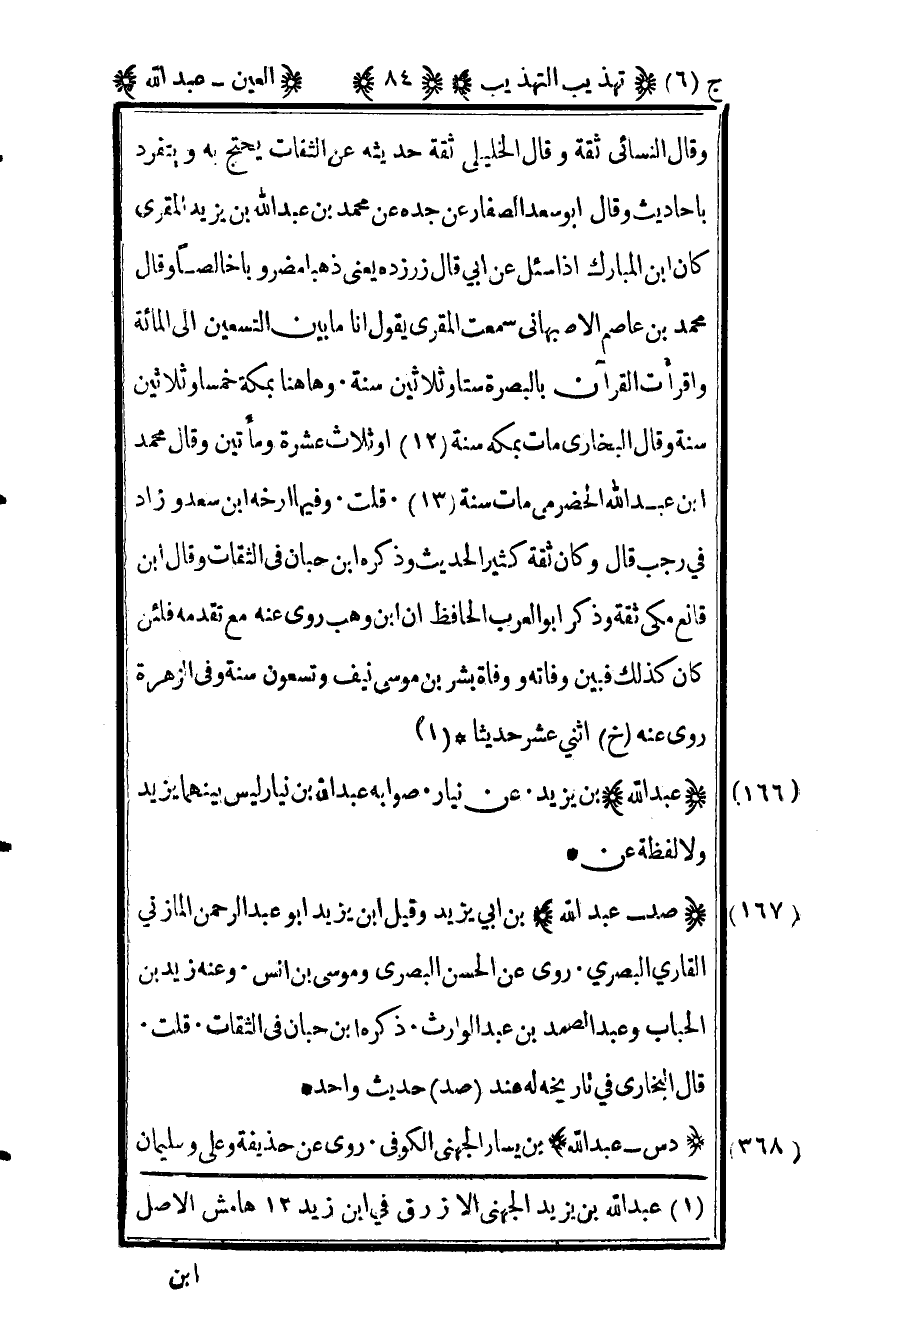 ج (٦) ﴿ تهذيب التهذيب ﴾ ﴿ ٨٤ ﴾ ﴿ العين ــ عبد الله ﴾
وقال النسائى ثقة و قال الخليلى ثقة حديثه عن الثقات يحتج به و يتفرد
باحاديث وقال ابوسعد الصفار عن جده عن محمد بن عبدالله بن يزيد المقرى
كان ابن المبارك اذا سئل عن ابي قال زرزده يعنى ذهبا مضروبا خالصاً وقال
محمد بن عاصم الاصبهانى سمعت المقرى يقول انا مابين التسعين الى المائة
واقرأت القرآن بالبصرة ستا وثلاثين سنة ٠ وهاهنا بمكة خمسا وثلاثين
سنة وقال البخارى مات بمكه سنة (١٢) او ثلاث عشرة ومأتين وقال محمد
ابن عبدالله الحضرمى مات سنة (١٣) ٠ قلت ٠ وفيها ارخه ابن سعد و زاد
في رجب قال وكان ثقة كثير الحديث وذكره ابن حبان فى الثقات وقال ابن
قانع مكى ثقة وذكر ابو العرب الحافظ ان ابن وهب روى عنه مع تقدمه فلئن
كان كذلك فبين وفاته و وفاة بشر بن موسى نيف وتسعون سنة وفى الزهرة
روى عنه (خ) اثني عشر حديثا * (١)
(١٦٦) ﴿ عبدالله ﴾ بن يزيد ٠ عن نيار ٠ صوابه عبدالله بن نيار ليس بينهما يزيد
ولا لفظة عن *
(١٦٧) ﴿ صد ــ عبد الله ﴾ بن ابي يزيد وقيل ابن يزيد ابو عبدالرحمن المازني
القاري البصري ٠ روى عن الحسن البصرى وموسى بن انس ٠ وعنه زيد بن
الحباب وعبد الصمد بن عبدالوارث ٠ ذكره ابن حبان فى الثقات ٠ قلت ٠
قال البخارى في تاريخه له عند (صد) حديث واحد *
(٣٦٨) ﴿ دس ــ عبدالله ﴾ بن يسار الجهنى الكوفى ٠ روى عن حذيفة وعلى وسليمان
(١) عبدالله بن يزيد الجهنى الازرق في ابن زيد ١٢ هامش الاصل
ابن